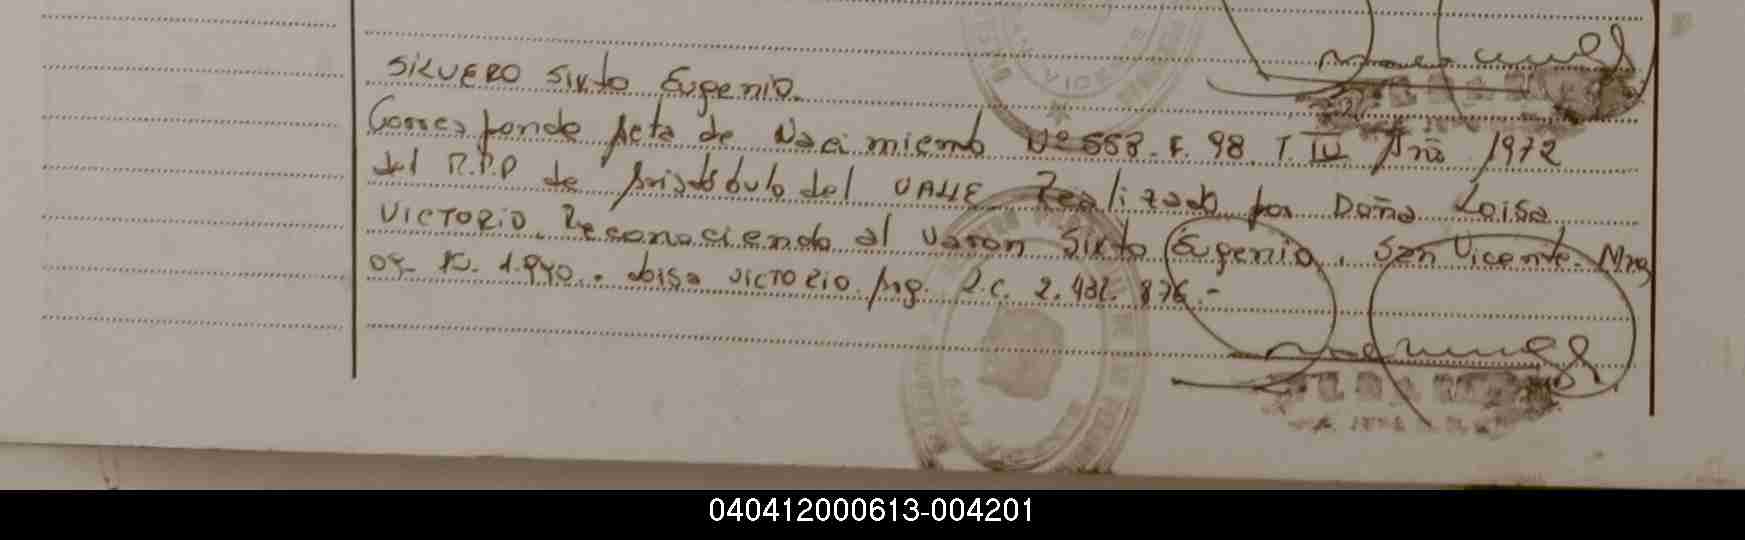 SILVERO Sixto Eugenio.
Corresponde Acta de Nacimiento Nº 558. F. 98. T. IV Año 1972
del R.P.P de Aristóbulo del VALLE Realizado por Doña Loisa
VICTORIO. Reconociendo al Varon Sixto Eugenio. San Vicente. Mnes
1.990. Loisa VICTORIO Arg. L.C. 2.432. 876.-
040412000613-004201